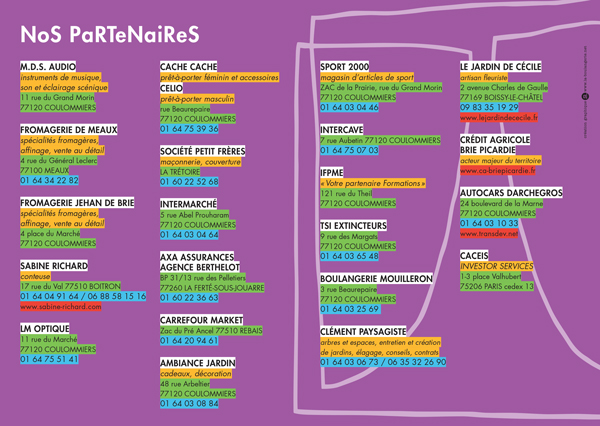 NoS PaRTeNaiReS
M.D.S. AUDIO
instruments de musique,
son et éclairage scénique
11 rue du Grand Morin
77120 COULOMMIERS
FROMAGERIE DE MEAUX
spécialités fromagères,
affinage, vente au détail
4 rue du Général Leclerc
77100 MEAUX
01 64 34 22 82
FROMAGERIE JEHAN DE BRIE
spécialités fromagères,
affinage, vente au détail
4 place du Marché
77120 COULOMMIERS
SABINE RICHARD
conteuse
17 rue du Val 77510 BOITRON
01 64 04 91 64 / 06 88 58 15 16
www.sabine-richard.com
LM OPTIQUE
11 rue du Marché
77120 COULOMMIERS
01 64 75 51 41
CACHE CACHE
prêt-à-porter féminin et accessoires
CELIO
prêt-à-porter masculin
rue Beaurepaire
77120 COULOMMIERS
01 64 75 39 36
SOCIÉTÉ PETIT FRÈRES
maçonnerie, couverture
LA TRÉTOIRE
01 60 22 52 68
INTERMARCHÉ
5 rue Abel Prouharam
77120 COULOMMIERS
01 64 03 04 64
AXA ASSURANCES
AGENCE BERTHELOT
BP 31/13 rue des Pelletiers
77260 LA FERTÉ-SOUS-JOUARRE
01 60 22 36 63
CARREFOUR MARKET
Zac du Pré Ancel 77510 REBAIS
01 64 20 94 61
AMBIANCE JARDIN
cadeaux, décoration
48 rue Arbeltier
77120 COULOMMIERS
01 64 03 08 84
SPORT 2000
magasin d'articles de sport
ZAC de la Prairie, rue du Grand Morin
77120 COULOMMIERS
01 64 03 04 46
INTERCAVE
7 rue Aubetin 77120 COULOMMIERS
01 64 75 07 03
IFPME
« Votre partenaire Formations »
121 rue du Theil
77120 COULOMMIERS
TSI EXTINCTEURS
9 rue des Margats
77120 COULOMMIERS
01 64 03 65 48
BOULANGERIE MOUILLERON
3 rue Beaurepaire
77120 COULOMMIERS
01 64 03 25 69
CLÉMENT PAYSAGISTE
arbres et espaces, entretien et création
de jardins, élagage, conseils, contrats
01 64 03 06 73 / 06 35 32 26 90
LE JARDIN DE CÉCILE
artisan fleuriste
2 avenue Charles de Gaulle
77169 BOISSY-LE-CHÂTEL
09 83 35 19 29
www.lejardindececile.fr
CRÉDIT AGRICOLE
BRIE PICARDIE
acteur majeur du territoire
www.ca-briepicardie.fr
AUTOCARS DARCHEGROS
24 boulevard de la Marne
77120 COULOMMIERS
01 64 03 10 33
www.transdev.net
CACEIS
INVESTOR SERVICES
1-3 place Valhubert
75206 PARIS cedex 13